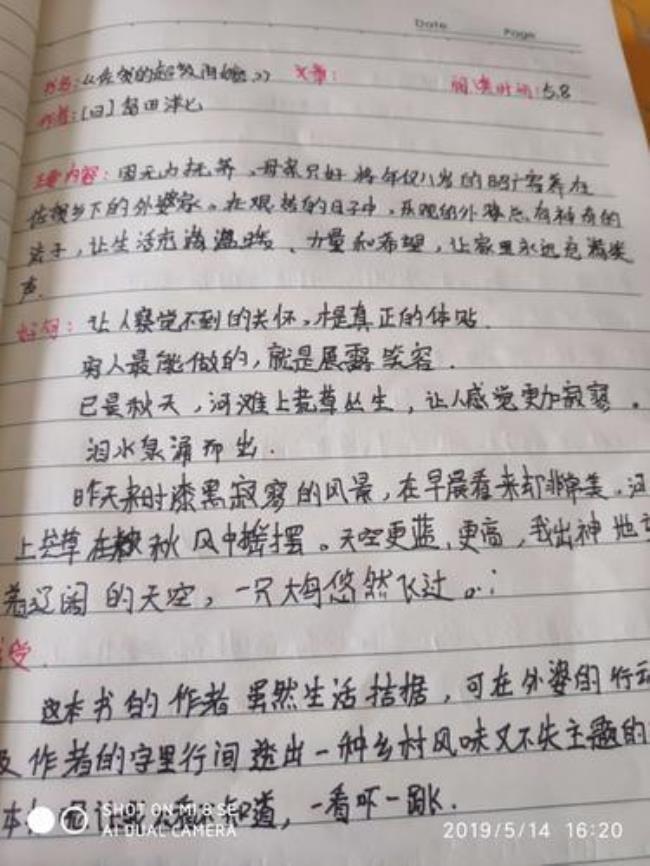 Date Page
书名:《佐贺的超级阿嬷》 文章: 阅读时间:5.8
作者:[日]岛田洋七
主要内容:因无力抚养,母亲只好将年仅八岁的昭广寄养在
佐贺乡下的外婆家。在艰苦的日子中,乐观的外婆总有神奇的
法子,让生活充满温暖、力量和希望,让家里永远充满笑
声.
好句:让人察觉不到的关怀,才是真正的体贴.
穷人最能做的,就是展露笑容.
已是秋天,河滩上荒草丛生,让人感觉更加寂寥。
泪水泉涌而出.
昨天来时漆黑寂寥的风景,在早晨看来却非常美,河
上芒草在秋风中摇摆。天空更蓝,更高,我出神地
着辽阔的天空,一只大鸟悠然飞过。
受.
这本书的作者虽然生活拮据,可在外婆的行动
及作者的字里行间透出一种乡村风味又不失主题的
本 不知道,一看吓一跳.
SHOT ON MI 8 SE
AI DUAL CAMERA
2019/5/14 16:20